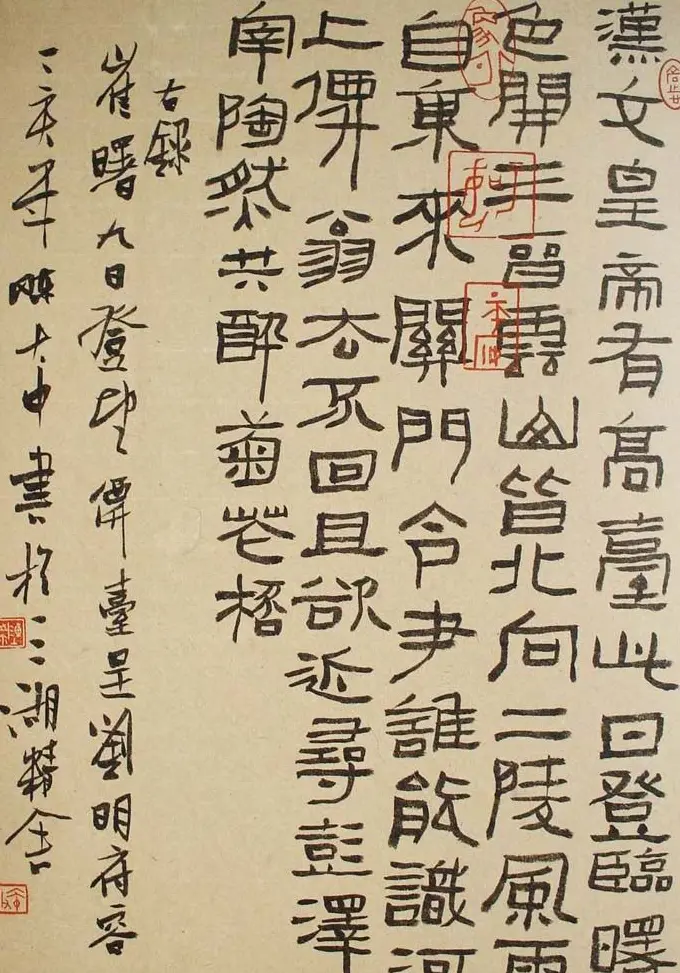 漢文皇帝有高臺此日登臨曙
色開三晉雲山皆北向二陵風雨
自東來關門令尹誰能識河
上僊翁去不回且欲近尋彭澤
宰陶然共醉菊花桮
右錄
崔曙九日登望僊臺呈劉明府容
丁亥年陳大中書於三湖精舍